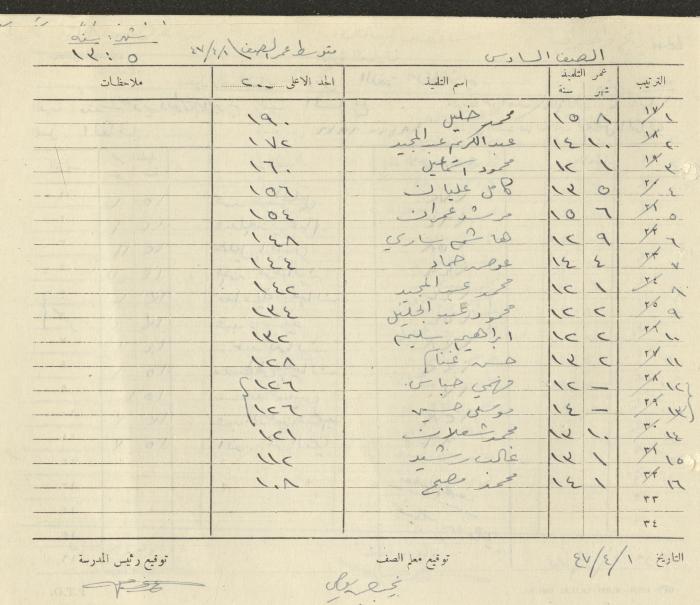 شهر : سنه
٥ : ١٣
الصف السادس متوسط عمر الصف ٤٧/٤/١
الترتيب عمر التلميذ شهر سنة اسم التلميذ الحد الاعلى ٢٠٠ ملاحظات
١٧/١ ٨ ١٥ محمد خليل ١٩٠
١٨/٢ ١٠ ١٤ عبد الكريم عبد المجيد ١٧٢
١٩/٣ ١ ١٢ محمود اسماعيل ١٦٠
٢٠/٤ ٥ ١٣ كامل عليان ١٥٦
٢١/٥ ٦ ١٥ مرشد عمران ١٥٤
٢٢/٦ ٩ ١٢ هاشم ساري ١٤٨
٢٣/٧ ٤ ١٤ عوض حماد ١٤٤
٢٤/٨ ١ ١٢ محمود عبد المجيد ١٤٢
٢٥/٩ ٢ ١٢ محمود عبد الجليل ١٣٤
٢٦/١٠ ٢ ١٢ ابراهيم سليم ١٣٢
٢٧/١١ ٢ ١٣ حسن ١٢٨
٢٨/١٢ – ١٢ فهمي عباس ١٢٦
٢٩/١٣ – ١٤ موسى حسين ١٢٦
٣٠/١٤ ١٠ ١٣ محمد شعلان ١٢١
٣١/١٥ ١ ١٣ غالب رشيد ١١٢
٣٢/١٦ ١ ١٤ محمد مصبح ١٠٨
٣٣
٣٤
التاريخ ٤٧/٤/١ توقيع معلم الصف توقيع رئيس المدرسة